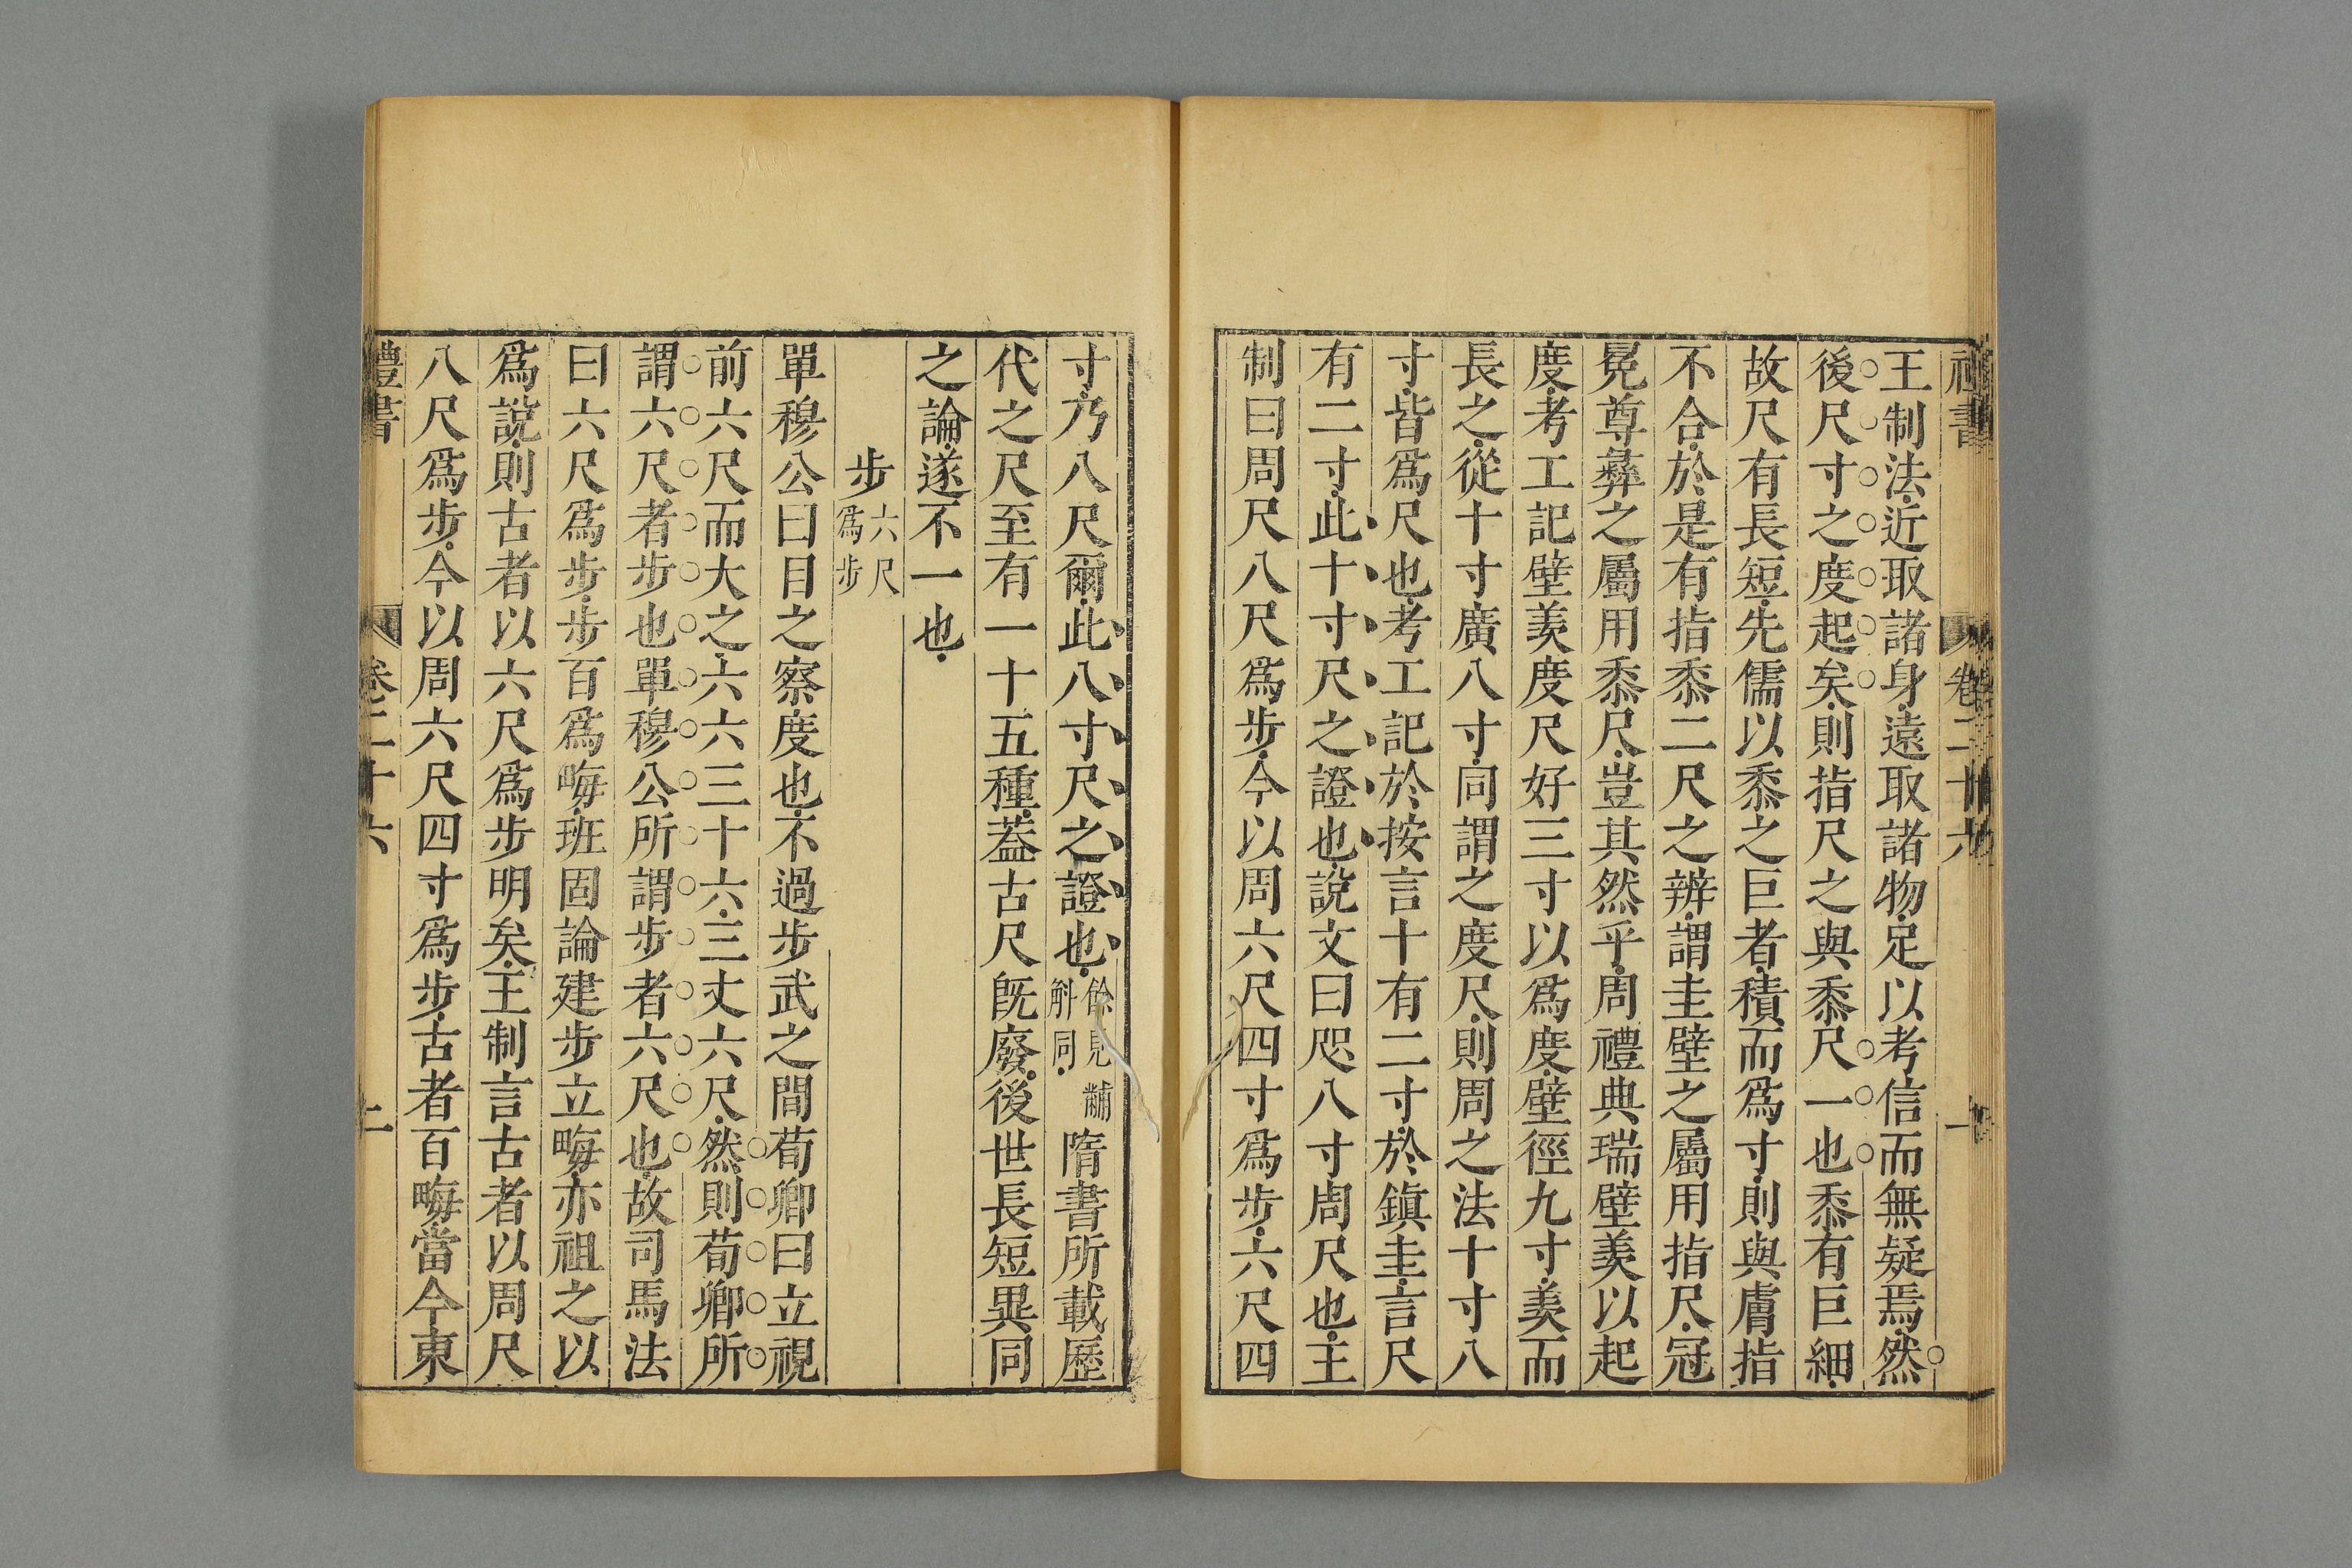 禮書 卷二十六 一
王制法近取諸身遠取諸物足以考信而無疑焉然
後尺寸之度起矣則指尺之與黍尺一也黍有巨細
故尺有長短先儒以黍之巨者積而爲寸則與膚指
不合於是有指黍二尺之辨謂圭璧之屬用指尺冠
冕尊彝之屬用黍尺豈其然乎周禮典瑞璧羨以起
度考工記璧羨度尺好三寸以爲度璧徑九寸羨而
長之從十寸廣八寸同謂之度尺則周之法十寸八
寸皆爲尺也考工記於按言十有二寸於鎭圭言尺
有二寸此十寸尺之證也說文曰咫八寸周尺也王
制曰周尺八尺爲步今以周六尺四寸爲步六尺四
寸乃八尺爾此八寸尺之證也餘見鬴斛同隋書所載歷
代之尺至有一十五種葢古尺旣廢後世長短異同
之論遂不一也
步六尺爲步
單穆公曰目之察度也不過步武之間荀卿曰立視
前六尺而大之六六三十六三丈六尺然則荀卿所
謂六尺者步也單穆公所謂步者六尺也故司馬法
曰六尺爲步步百爲畮班固論建步立畮亦祖之以
爲說則古者以六尺爲步明矣王制言古者以周尺
八尺爲步今以周六尺四寸爲步古者百畮當今東
禮書 卷二十六 二